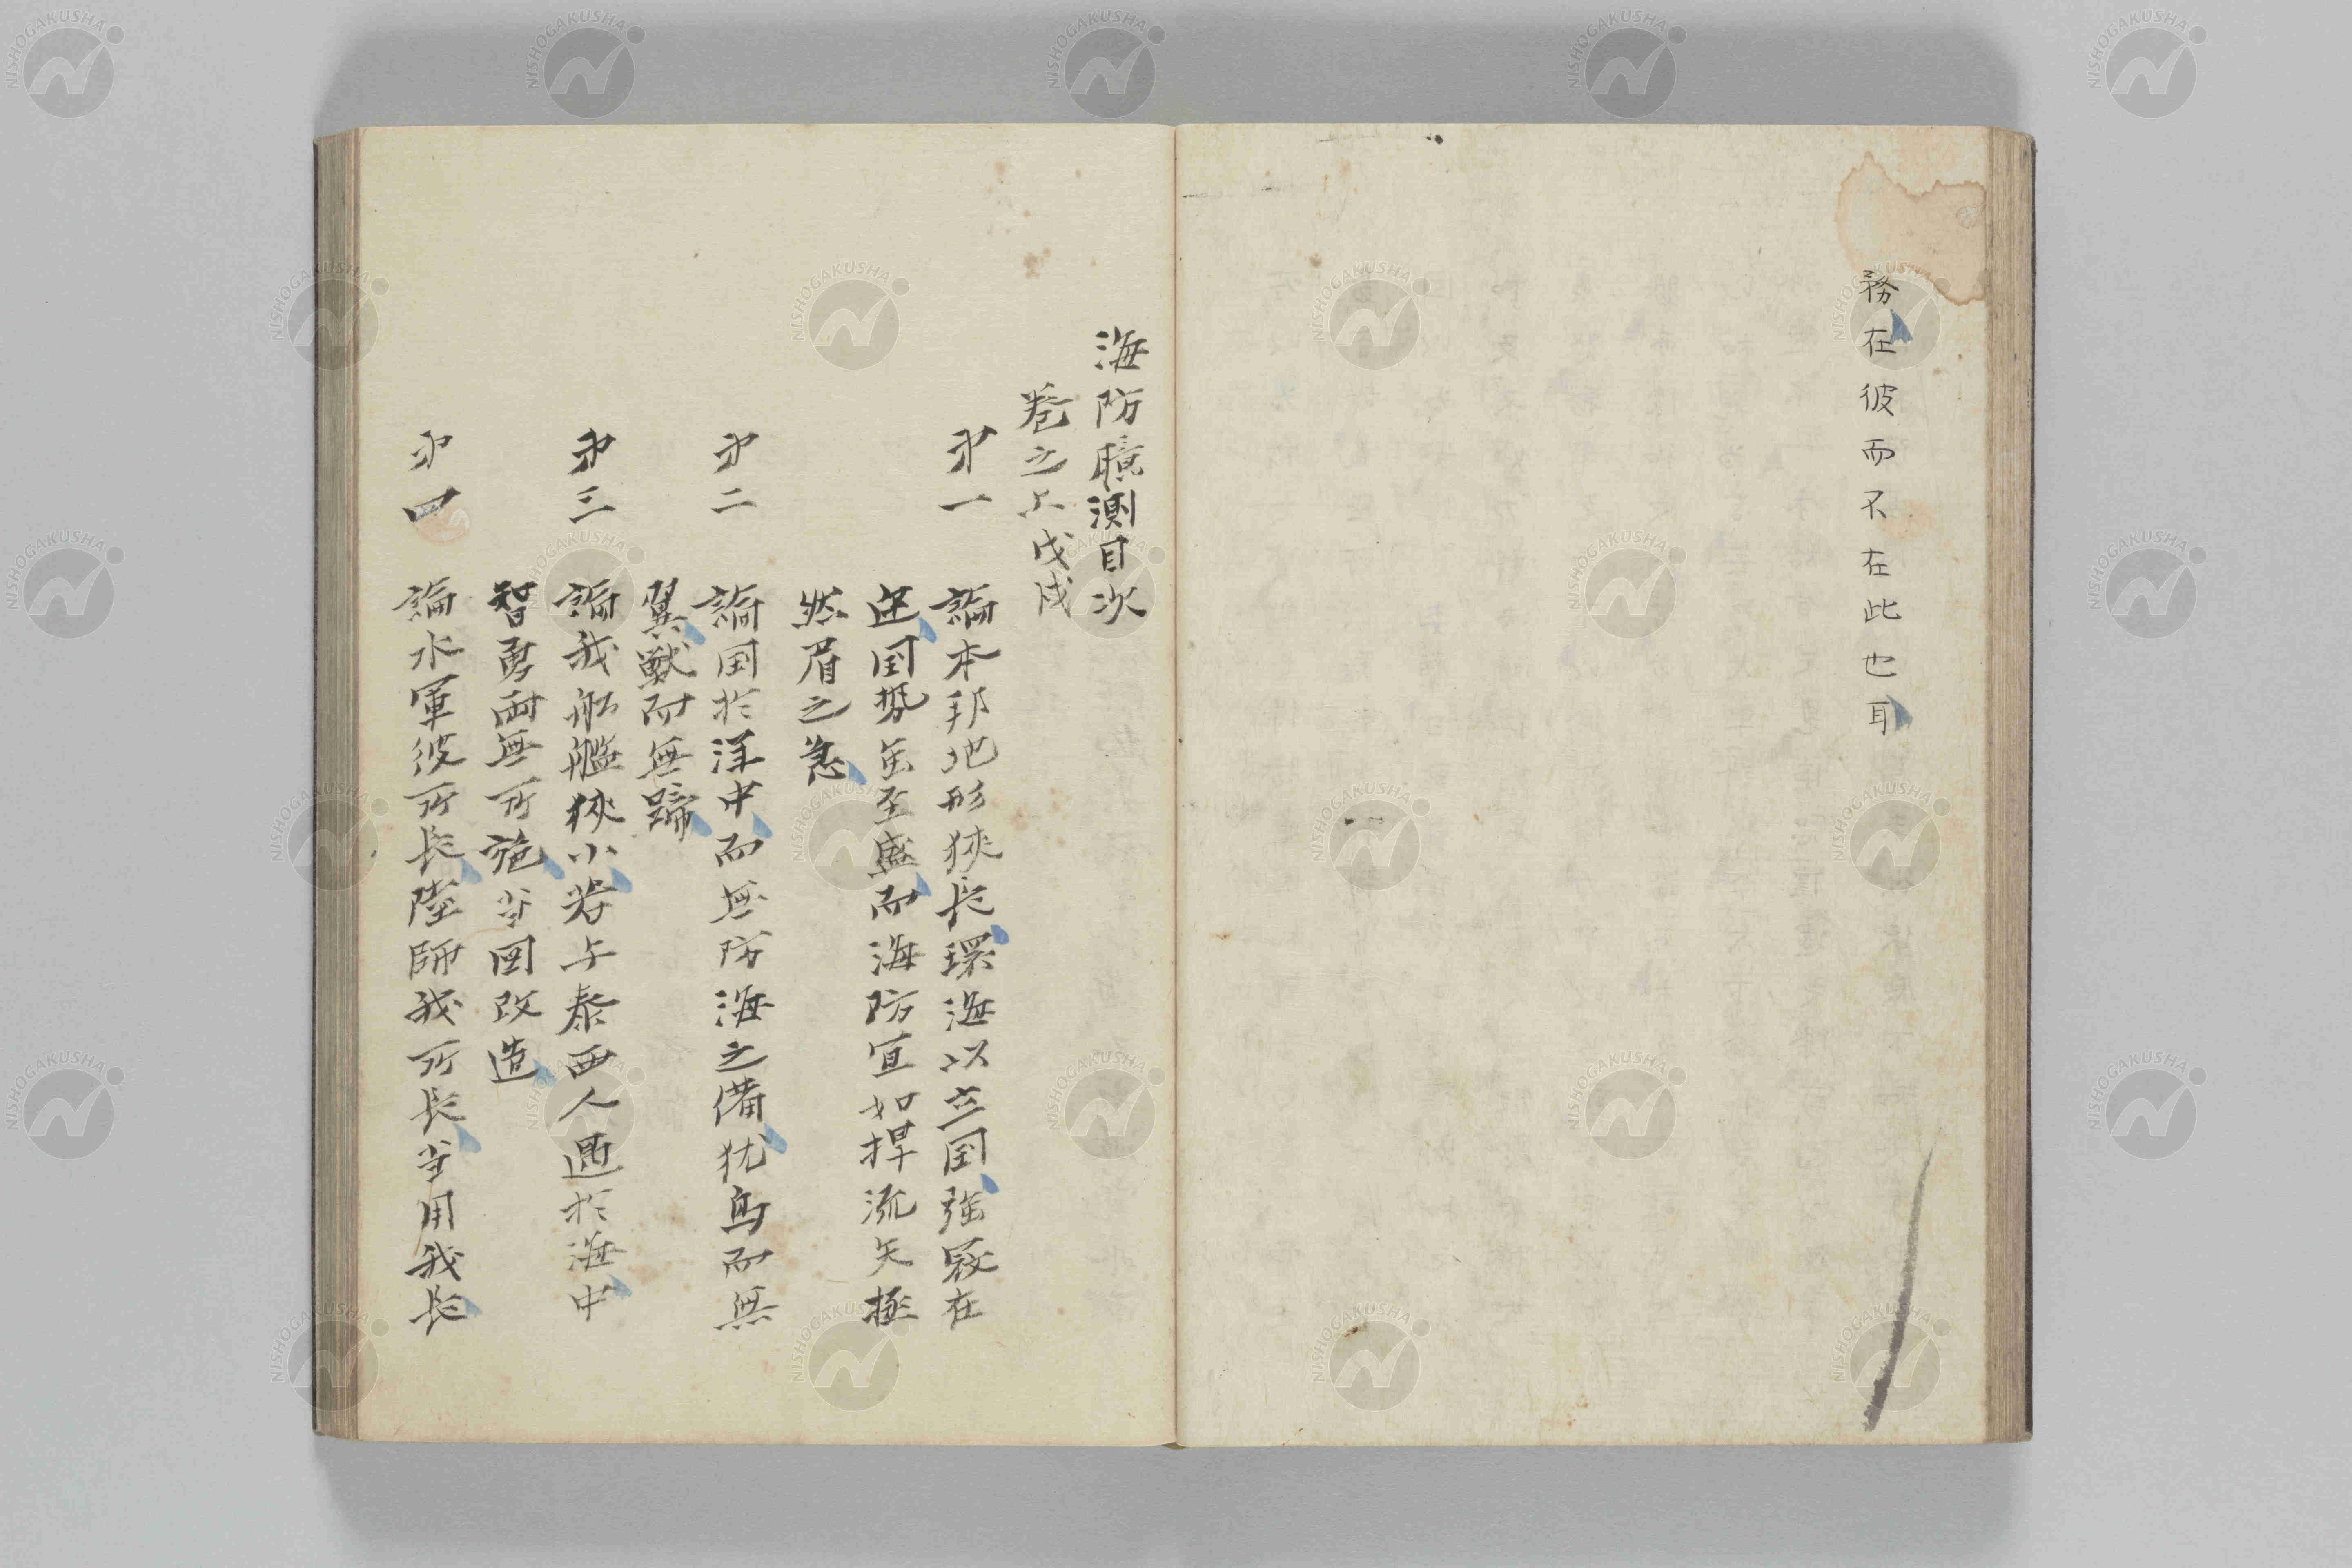 務在彼而不在此也耳
海防臆測目次
巻之上戊戌
第一 論本邦地形狭長環海以立国強寇在
近国勢缶至盛而海防宜如捍流矢極
然眉之急
第二 論国於洋中而無防海之備犹鳥而無
翼獣而無蹄
第三 論我舩艦狭小若与泰西人遇於海中
智勇両無所施当図改造
第四 論水軍彼所長陸師我所長当用我長
NISHOGAKUSHA